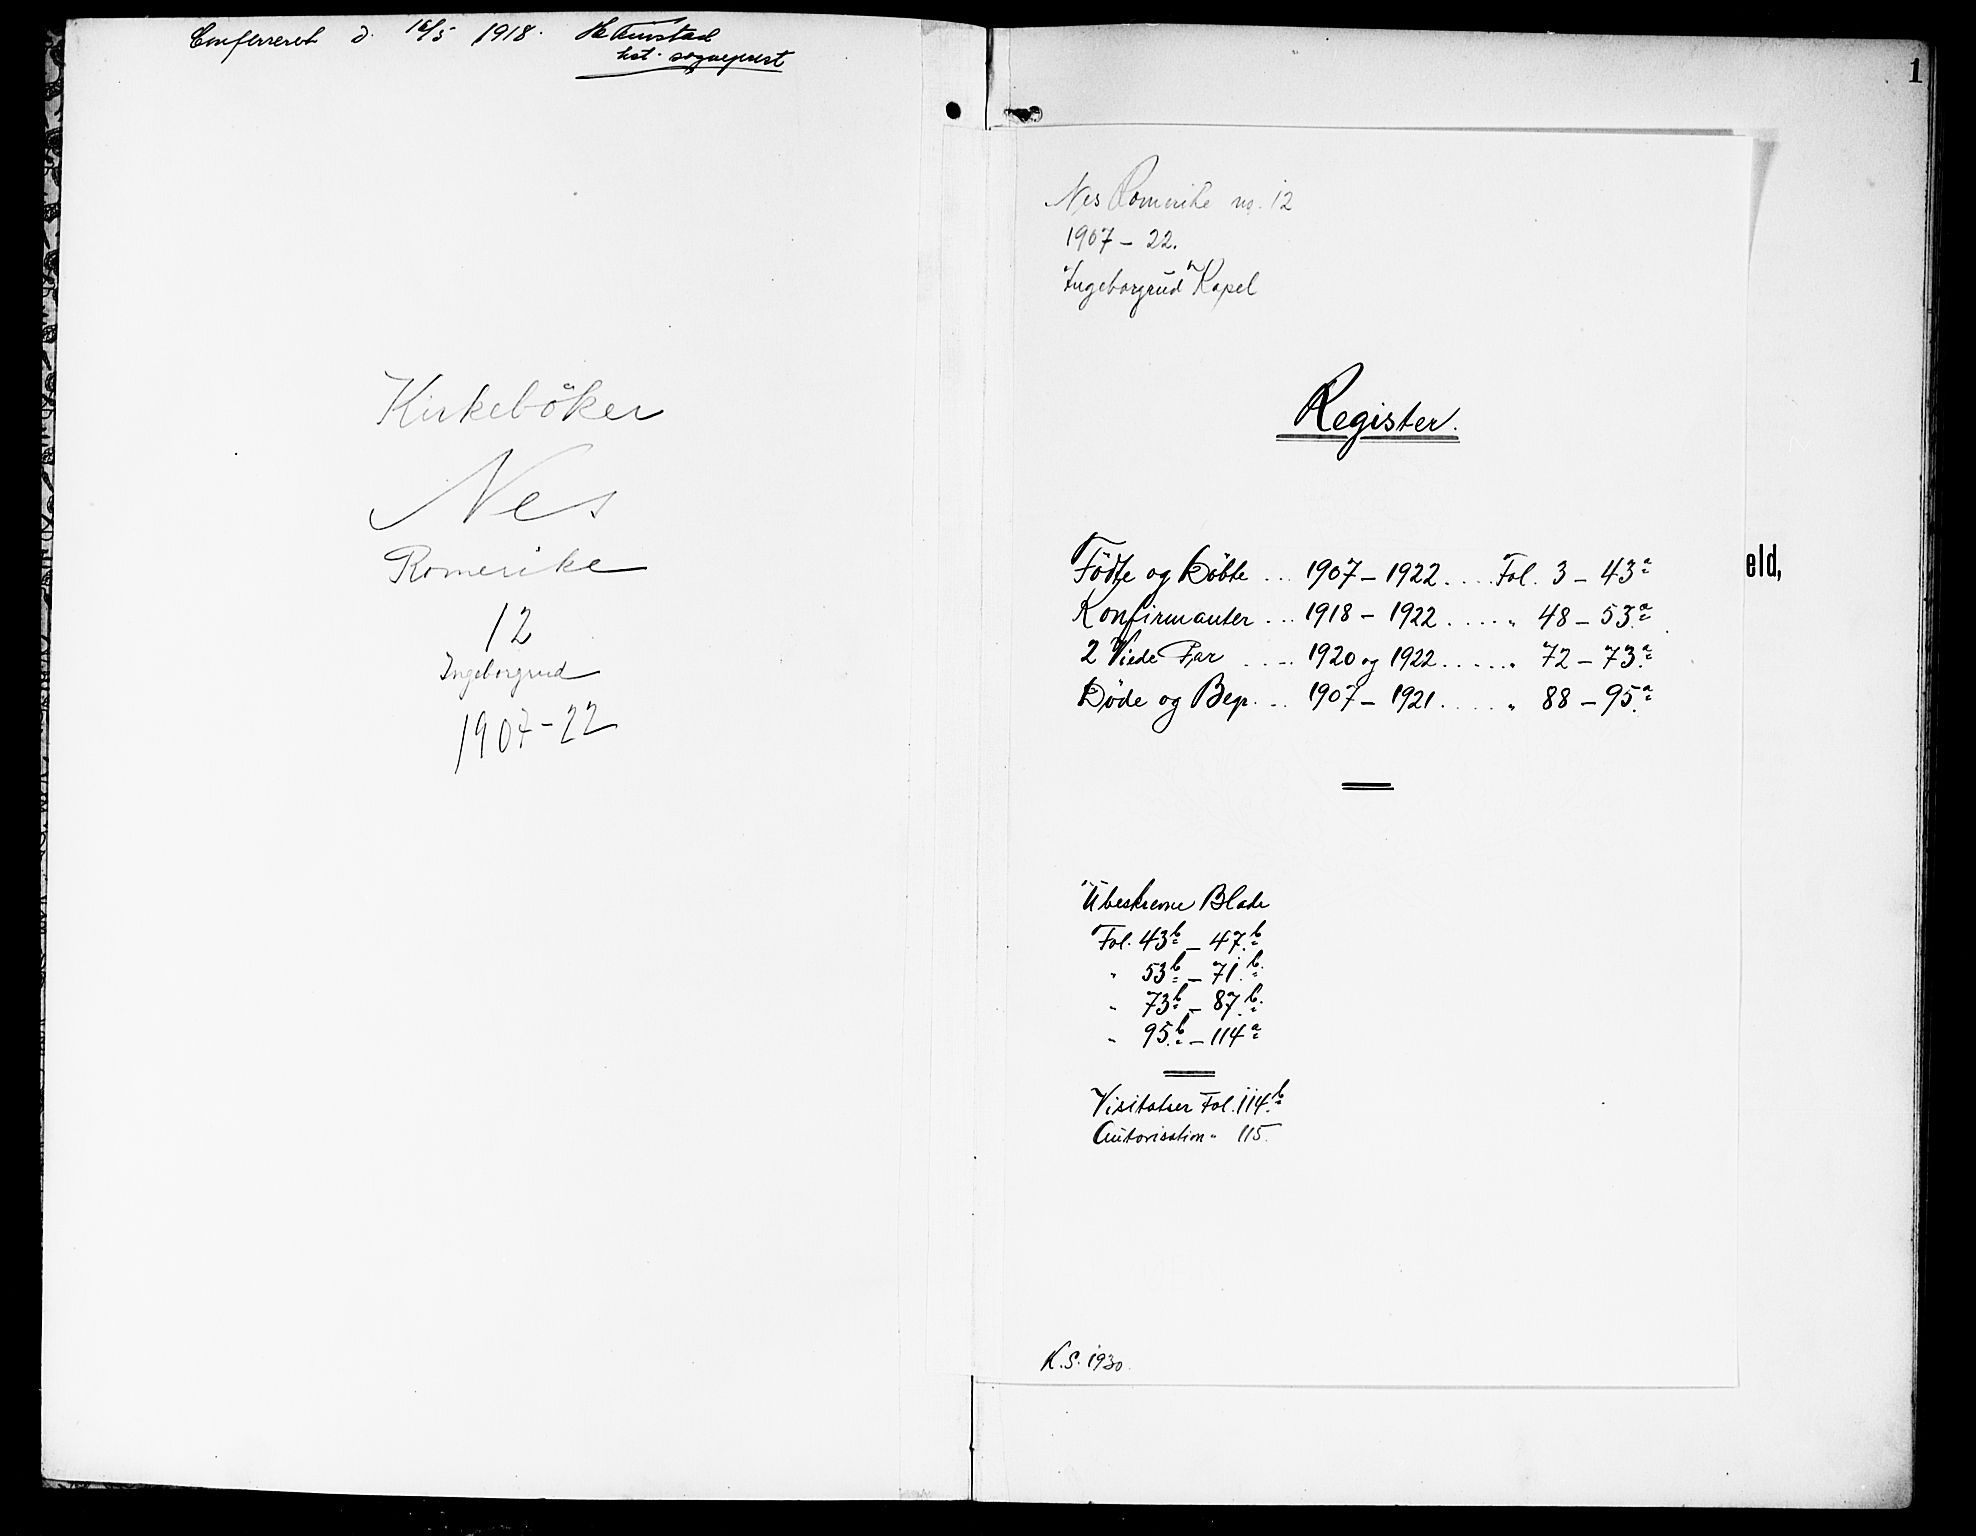 Confereret d. 16/5 1918.
kst. sogneprest
Kirkeböker
Nes
Romerike
12
Ingeborgrud
1907-22
1
Nes Romerike no. 12
1907 - 22.
Ingeborgrud Kapel
Register.
Födte og Döbte .... 1907 - 1922 .... Fol. 3 - 43a
Konfirmanter ... 1918 - 1922 .... " 48 - 53a
2 Viede Par .... 1920 og 1922 ..... " 72 - 73a
Döde og Beg. ... 1907 - 1921 .... " 88 - 95a
eld,
Ubeskrevne Blade
Fol. 43b - 47b
" 53b - 71b.
" 73b - 87b.
" 95b - 114a
Visitatser Fol. 114b
Autorisation " 115.
K.S. 1930.